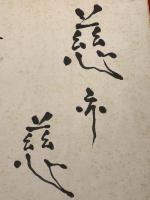 慈亦慈